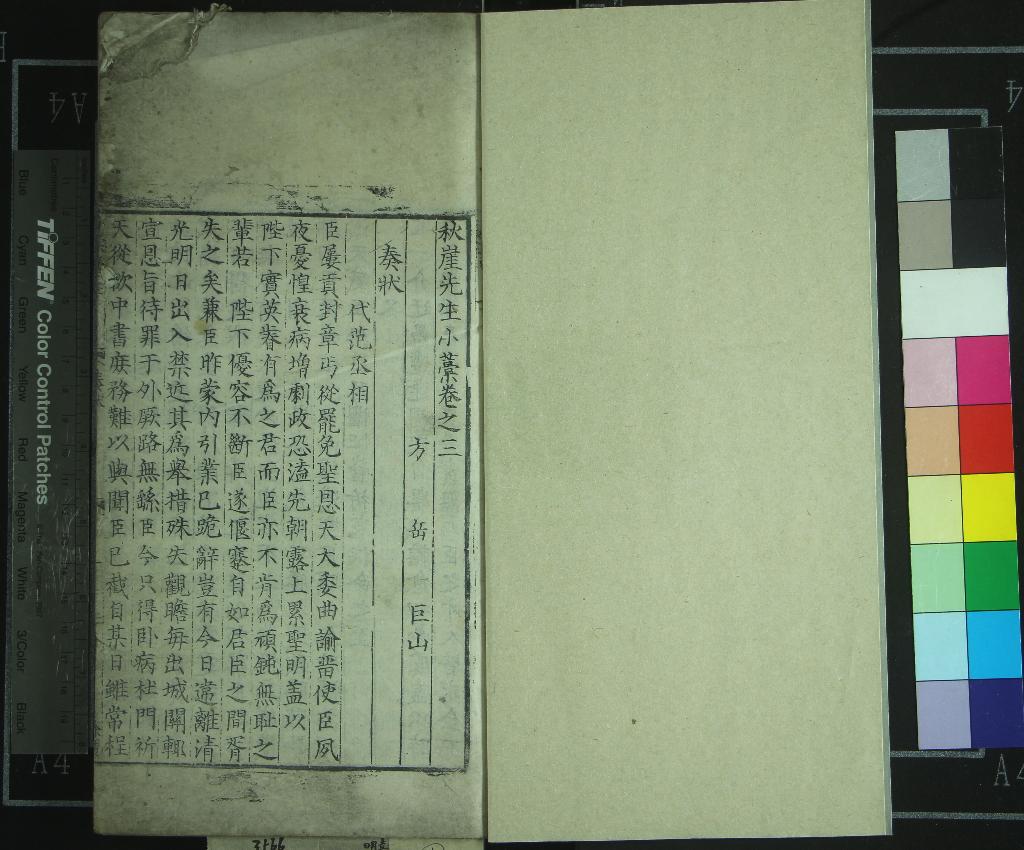 秋崖先生小藁卷之三
方 岳 巨山
奏狀
代范丞相
臣屢貢封章丐從罷免聖恩天大委曲諭畱使臣夙
夜憂惶衰病增劇政恐溘先朝露上累聖明盖以
陛下實英睿有爲之君而臣亦不肯爲頑鈍無耻之
輩若 陛下優容不斷臣遂偃蹇自如君臣之間胥
失之矣兼臣昨蒙內引業已跪辭豈有今日嘗離清
光明日出入禁近其爲舉措殊失觀瞻每出城關輒
宣恩旨待罪于外厥路無繇臣今只得卧病杜門祈
天從欲中書庶務難以與聞臣已截自某日雖常程
TIFFEN Color Control Patches
Blue
Cyan
Green
Yellow
Red
Magenta
White
3/Color
Black
A4
A4
A4